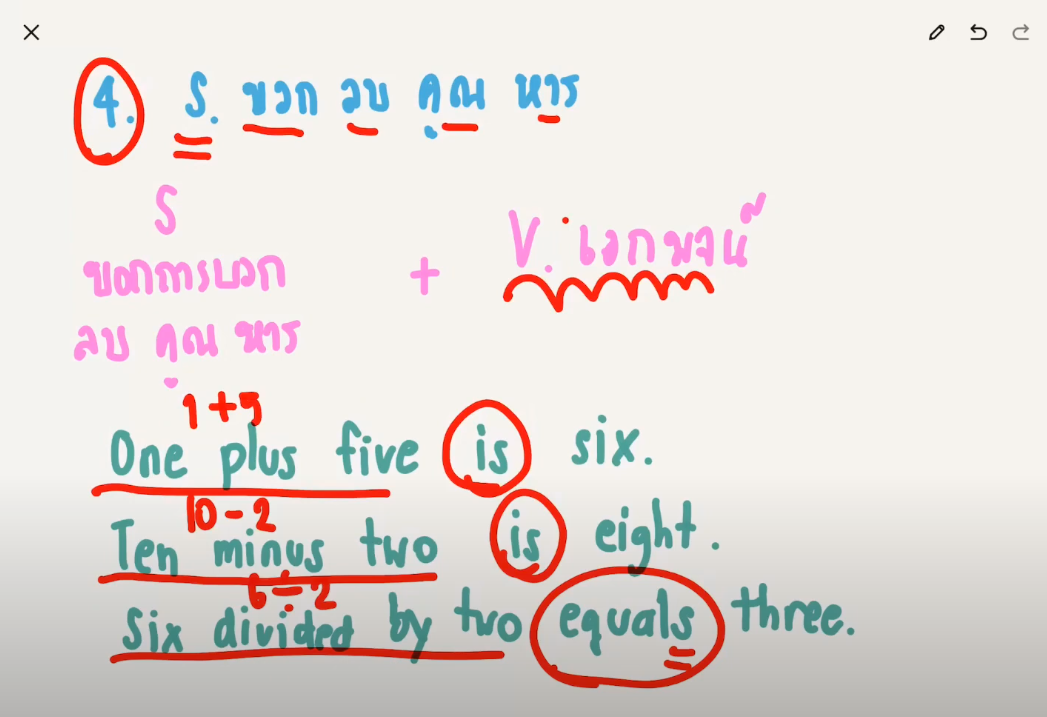 4. S. บวก ลบ คูณ หาร
S
ของการบวก + V. เอกพจน์
ลบ คูณ หาร
1+5
One plus five is six.
10-2
Ten minus two is eight.
6÷2
Six divided by two equals three.